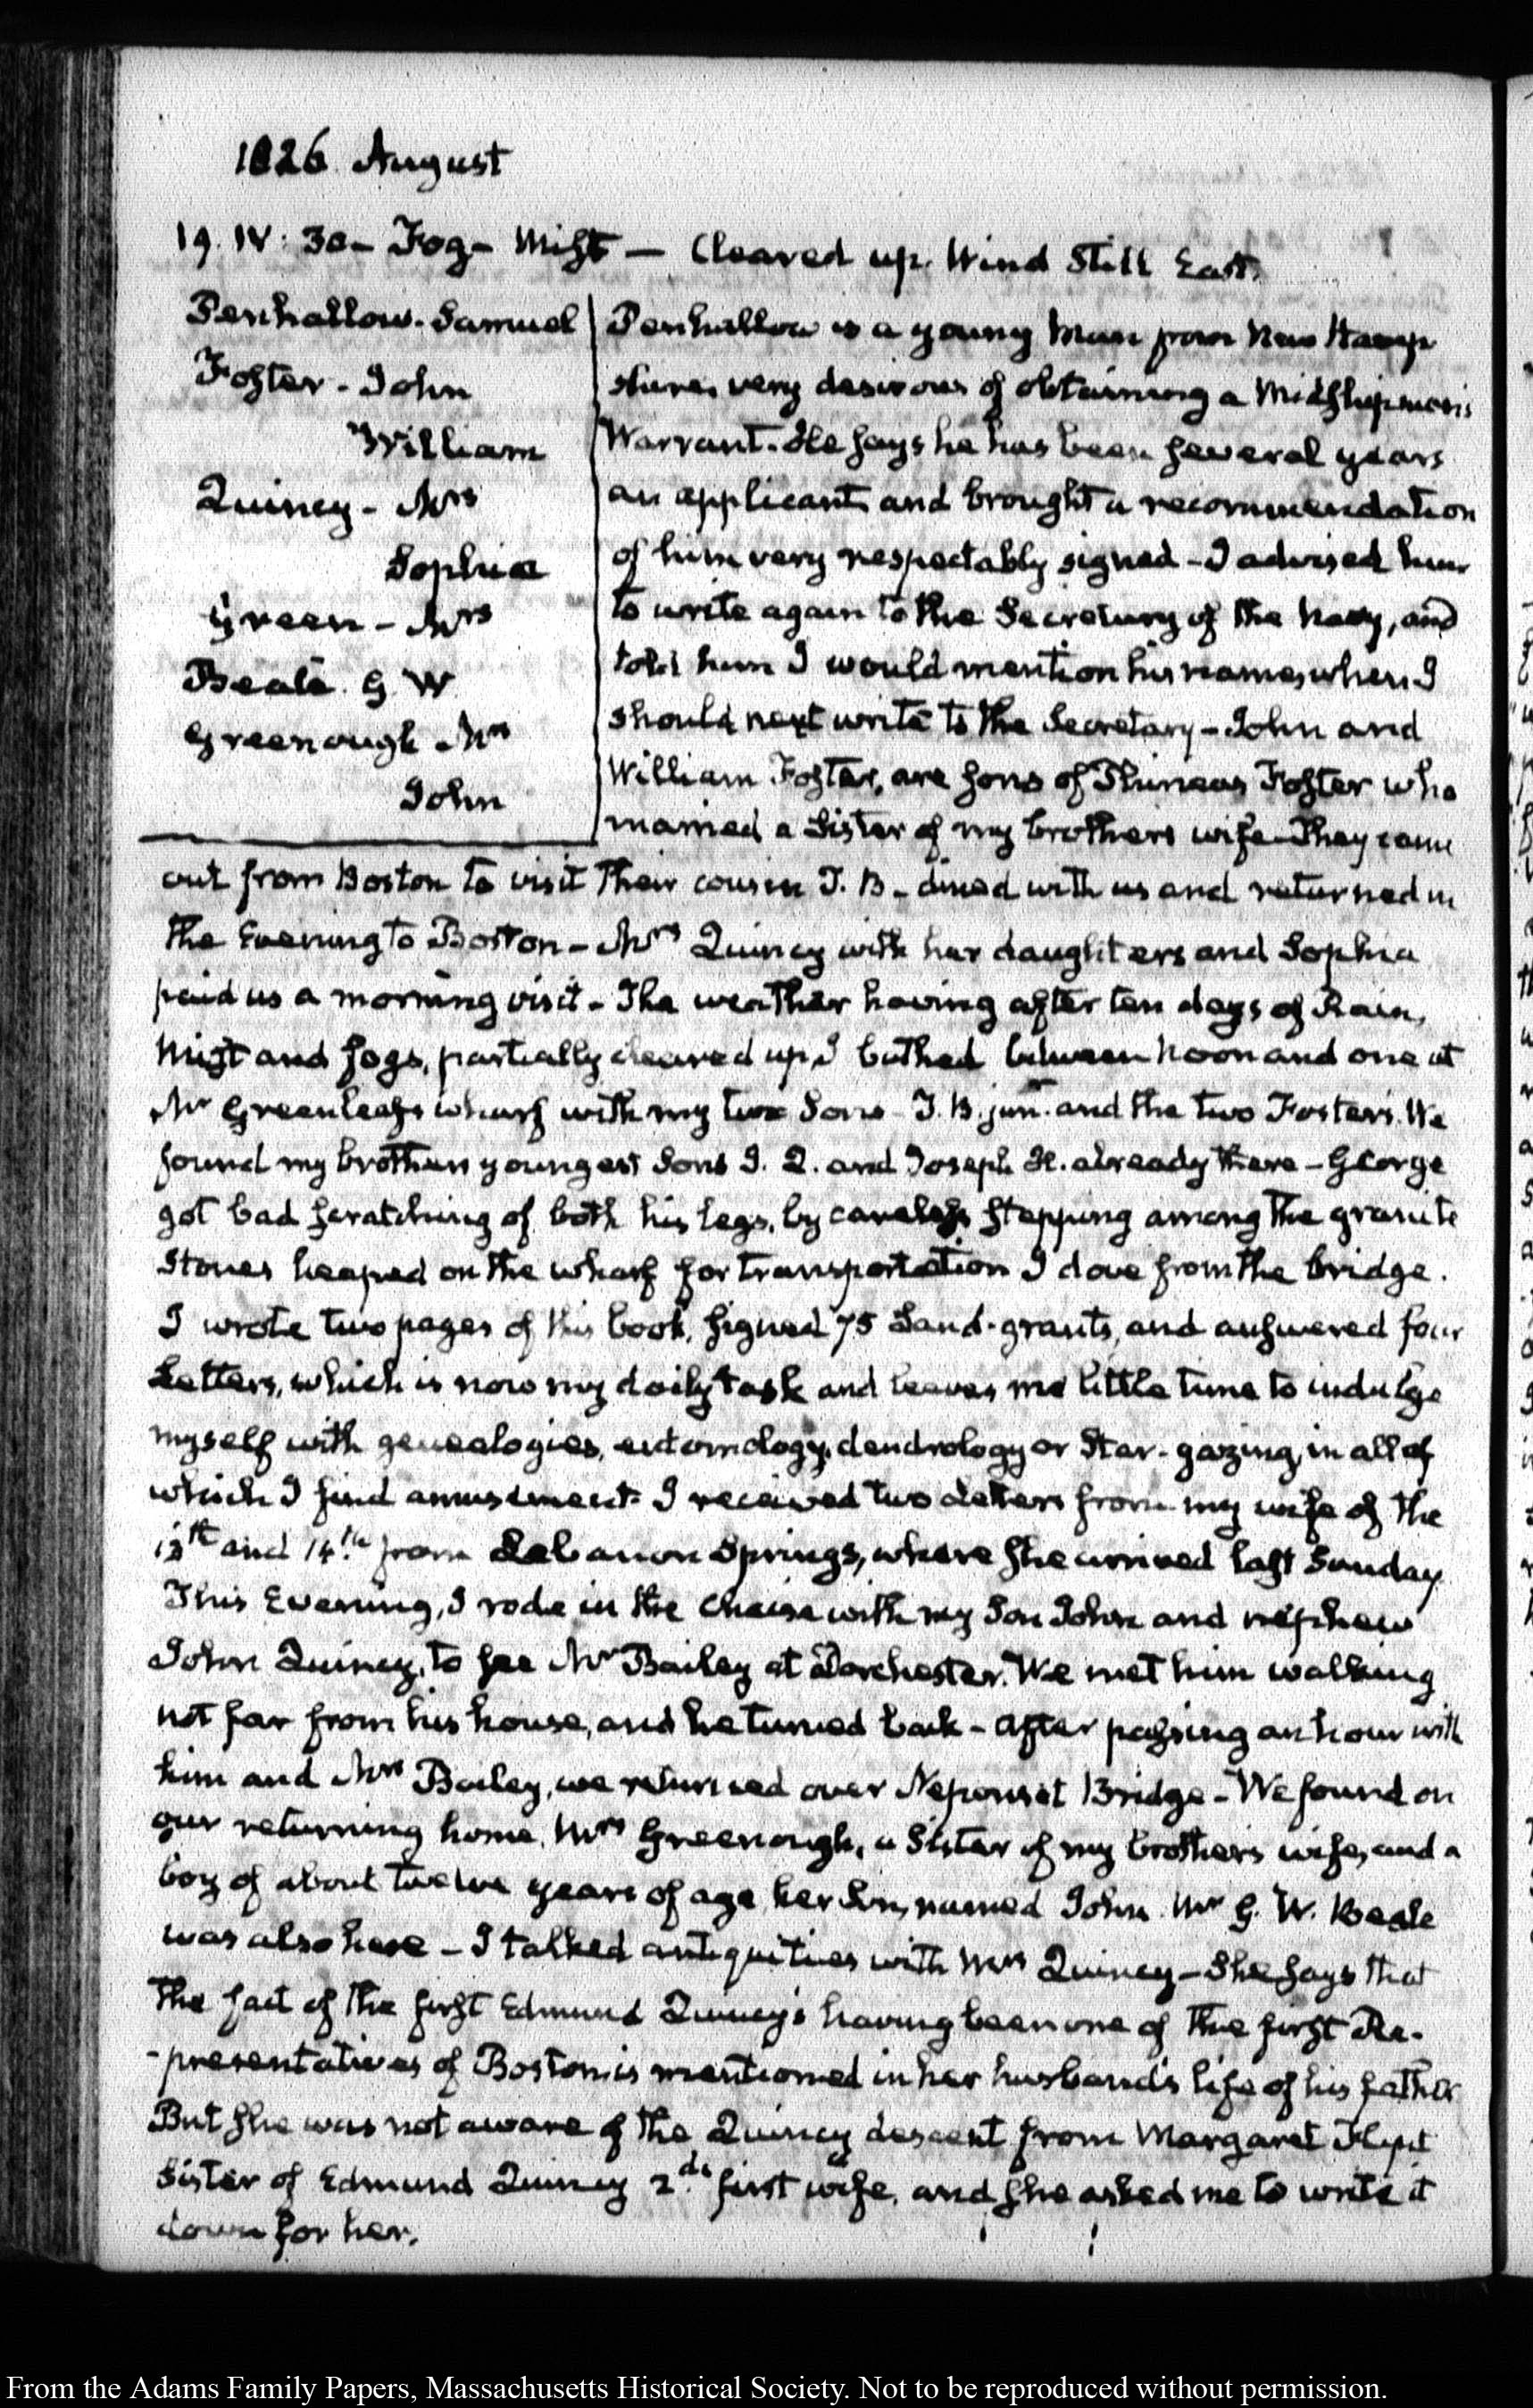 1826. August
19. IV: 30 – Fog – Mist – Cleared up. Wind Still East.
Penhallow. Samuel
Foster - John
" William
Quincy - Mrs
Sophia
Green - Mrs
Beale. G. W
Greenough Mrs
John
Penhallow is a young Man from New Hamp
shire, very desirous of obtaining a Midshipman's
Warrant. He says he has been several years
an applicant, and brought a recommendation
of him very respectably signed – I advised him
to write again to the Secretary of the Navy, and
told him I would mention his name, when I
should next write to the Secretary – John and
William Foster, are Sons of Phineas Foster who
married a Sister of my brothers wife – They came
out from Boston to visit their cousin T. B – dined with us and returned in
the Evening to Boston – Mrs Quincy with her daughters and Sophia
paid us a morning visit – The weather having after ten days of Rain,
Mist and fogs, partially cleared up, I bathed between Noon and one at
Mr Greenleaf's wharf with my two Sons – T. B. jun. and the two Fosters. We
found my brothers youngest Sons I. Q. and Joseph H. already there – George
got bad scratching of both his legs, by careless stepping among the granite
Stones heaped on the wharf for transportation I dove from the bridge.
I wrote two pages of this book, signed 75 Land-grants, and answered four
Letters, which is now my daily task and leaves me little time to indulge
myself with genealogies, entomology, dendrology or Star-gazing, in all of
which I find amusement. I received two Letters from my wife of the
13th and 14th from Lebanon Springs, where she arrived last Sunday
This Evening, I rode in the Chaise with my Son John and nephew
John Quincy, to see Mr Bailey at Dorchester. We met him walking
not far from his house, and he turned back – After passing an hour with
him and Mrs Bailey, we returned over Neponset Bridge – We found on
our returning home, Mrs Greenough, a Sister of my brother's wife, and a
boy of about twelve years of age her Son, named John. Mr G. W. Beale
was also here – I talked antiquities with Mrs Quincy – She says that
the fact of the first Edmund Quincy's having been one of the first Re-
-presentatives of Boston is mentioned in her husband's life of his father
But she was not aware of the Quincy descent from Margaret Flynt
Sister of Edmund Quincy 2.ds first wife, and she asked me to write it
down for her.
From the Adams Family Papers, Massachusetts Historical Society. Not to be reproduced without permission.